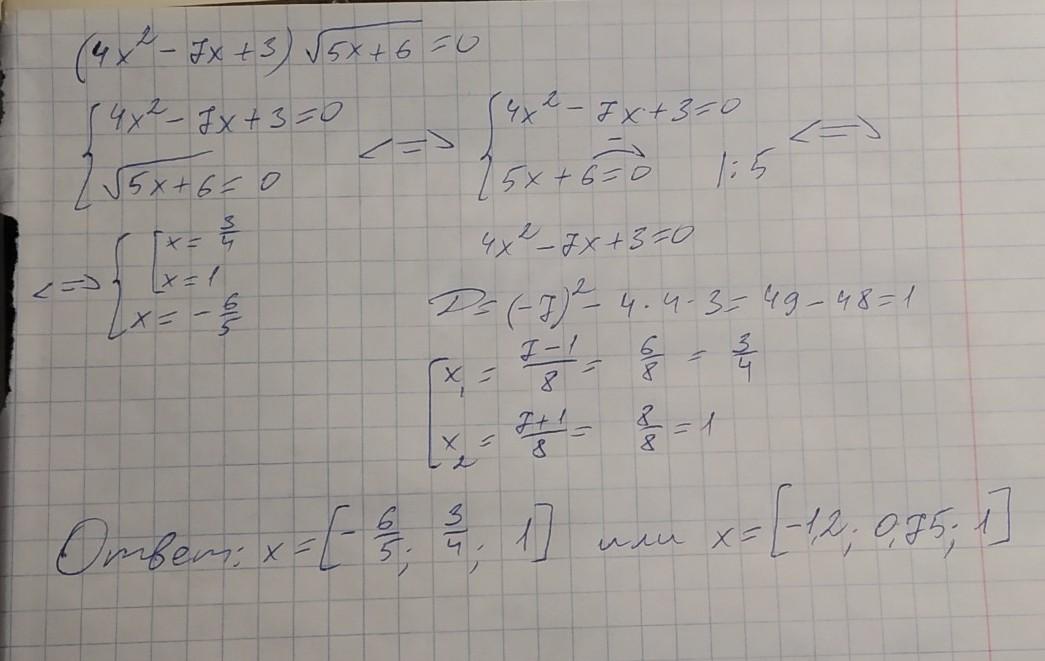 (4x² - 7x + 3) √(5x + 6) = 0
{ 4x² - 7x + 3 = 0
√(5x + 6) = 0 <=> { 4x² - 7x + 3 = 0
5x + 6 = 0 |: 5 <=>
<=> { [ x = 3/4
x = 1
x = - 6/5
4x² - 7x + 3 = 0
D = (-7)² - 4 · 4 · 3 = 49 - 48 = 1
[ x₁ = (7 - 1)/8 = 6/8 = 3/4
x₂ = (7 + 1)/8 = 8/8 = 1
Ответ: x = [- 6/5; 3/4; 1] или x = [-1,2; 0,75; 1]